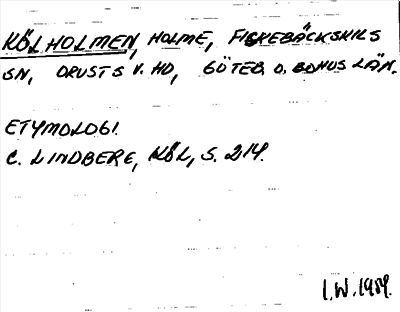 KÖLHOLMEN, HOLME, FISKEBÄCKSKILS
SN, ORUSTS V. HD, GÖTEB. O. BOHUS LÄN.
ETYMOLOGI.
C. LINDBERG, KÖL, S. 214.
I.W. 1984.